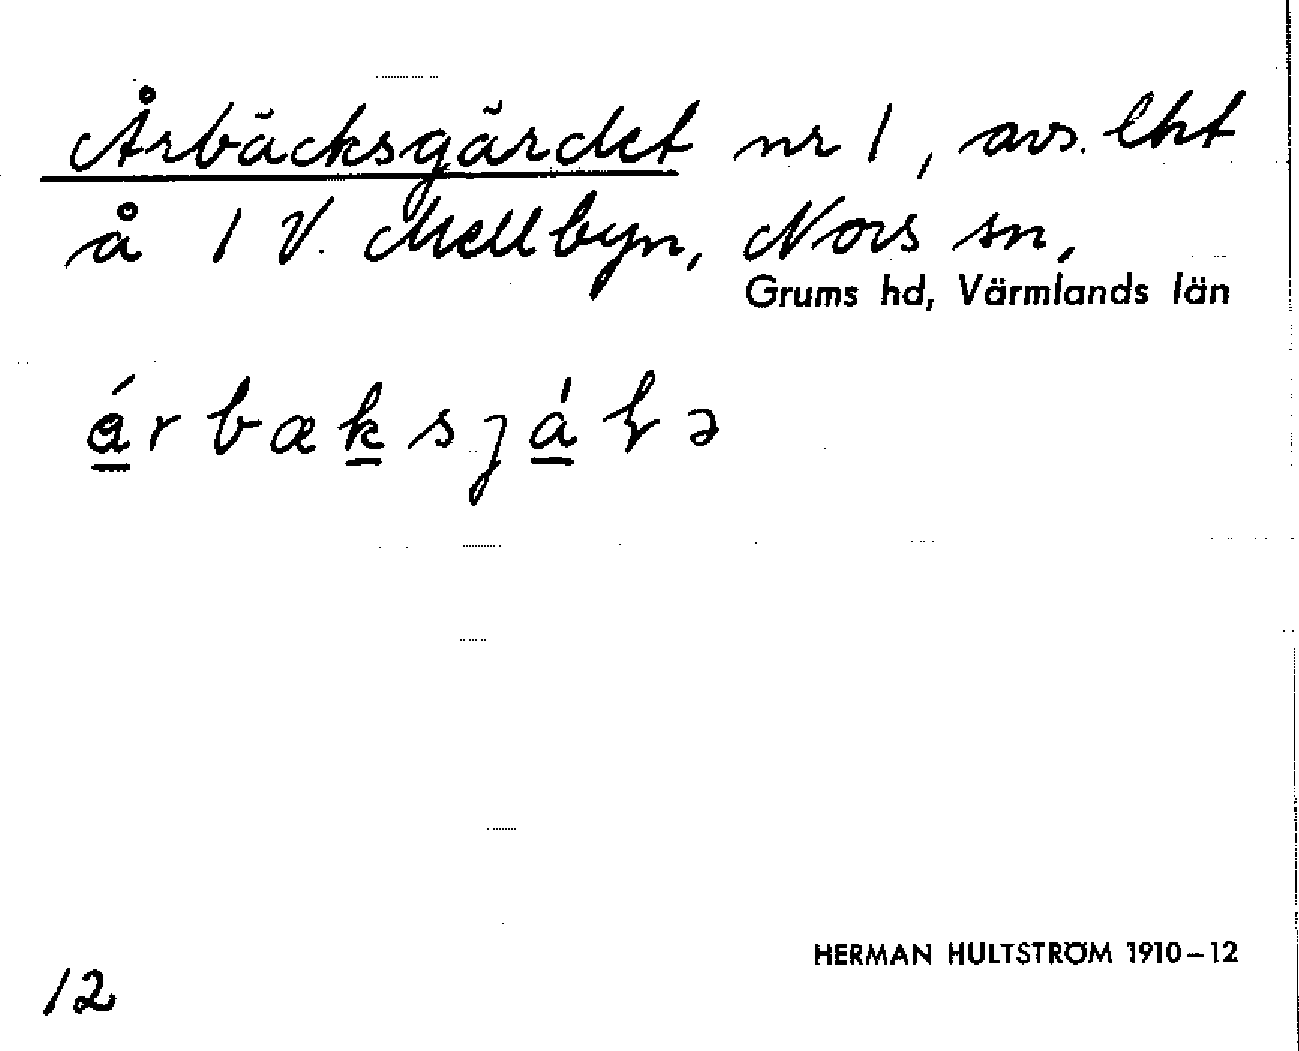 Årbäcksgärdet nr 1, avs. lht
å 1 V. Mellbyn, Nors sn,
Grums hd, Värmlands län
HERMAN HULTSTRÖM 1910–12
12